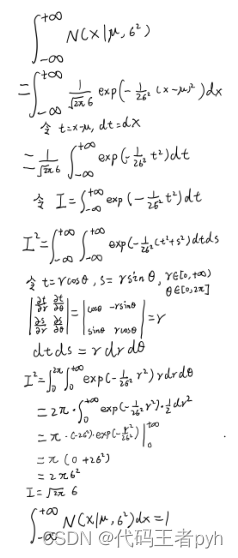 ∫_{-∞}^{+∞} N(x|μ, σ²)
= ∫_{-∞}^{+∞} 1/(√(2π) σ) exp(-1/(2σ²) (x-μ)²) dx
令 t=x-μ, dt=dx
= 1/(√(2π) σ) ∫_{-∞}^{+∞} exp(-1/(2σ²) t²) dt
令 I=∫_{-∞}^{+∞} exp(-1/(2σ²) t²) dt
I²=∫_{-∞}^{+∞} ∫_{-∞}^{+∞} exp(-1/(2σ²) (t²+s²)) dt ds
令 t=rcosθ, s=rsinθ, r∈[0,+∞)
θ∈[0,2π]
|∂t/∂r ∂t/∂θ; ∂s/∂r ∂s/∂θ| = |cosθ -rsinθ; sinθ rcosθ| = r
dt ds = r dr dθ
I²=∫_0^{2π} ∫_0^{+∞} exp(-1/(2σ²) r²) r dr dθ
= 2π · ∫_0^{+∞} exp(-1/(2σ²) r²) · 1/2 dr²
= π · (-2σ²) · exp(-r²/(2σ²)) |_0^{+∞}
= π (0+2σ²)
= 2πσ²
I=√(2π) σ
∫_{-∞}^{+∞} N(x|μ, σ²) dx = 1
CSDN @代码王者pyh